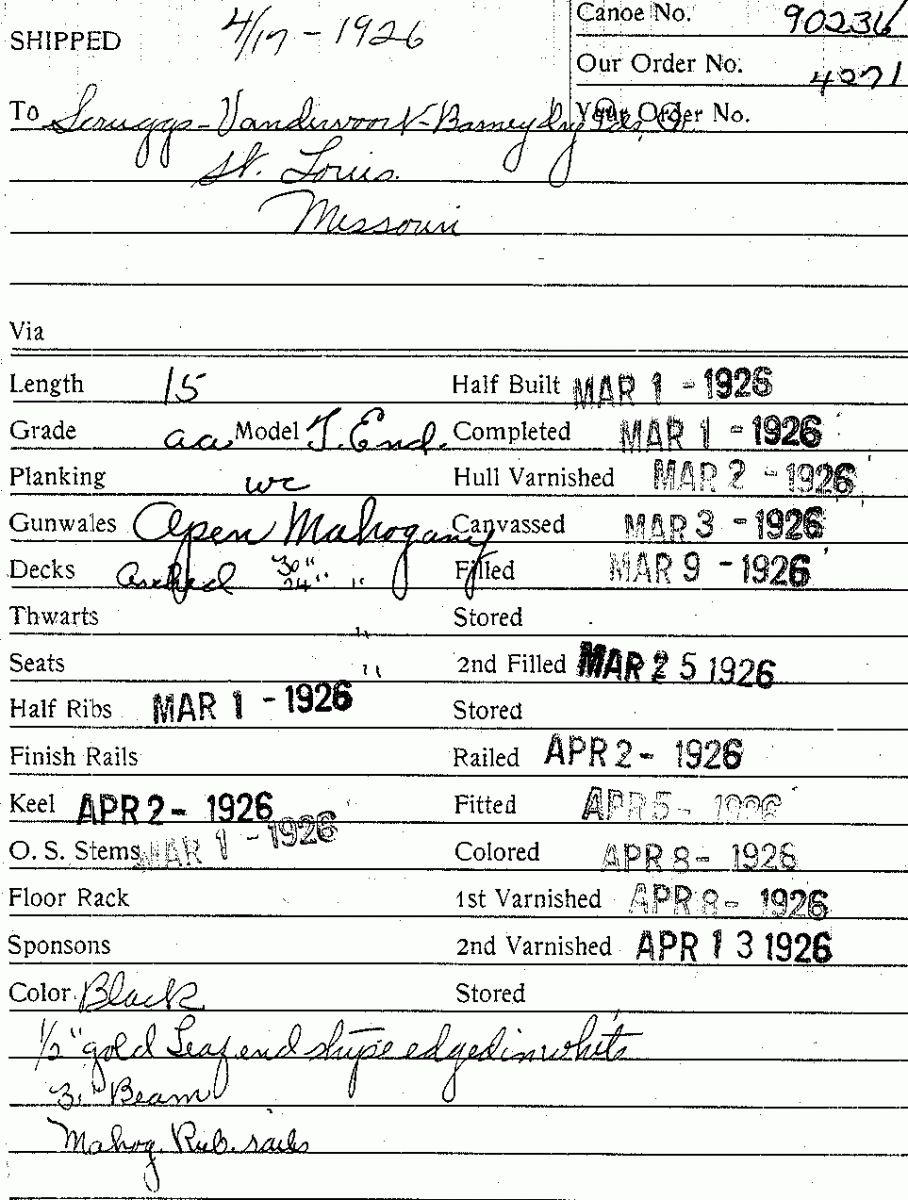 SHIPPED 4/17-1926
Canoe No. 90236
Our Order No. 4271
Your Order No.
To Scruggs-Vandervoort-Barney Dry Gds. Co.
St. Louis
Missouri
Via
Length 15 Half Built MAR 1 - 1926
Grade aa Model T. End. Completed MAR 1 - 1926
Planking wc Hull Varnished MAR 2 - 1926
Gunwales Open Mahogany Canvassed MAR 3 - 1926
Decks Arched 30" 24" " Filled MAR 9 - 1926
Thwarts " Stored
Seats " 2nd Filled MAR 25 1926
Half Ribs MAR 1 - 1926 Stored
Finish Rails Railed APR 2 - 1926
Keel APR 2 - 1926 Fitted APR 5 - 1926
O. S. Stems MAR 1 - 1926 Colored APR 8 - 1926
Floor Rack 1st Varnished APR 8 - 1926
Sponsons 2nd Varnished APR 13 1926
Color Black Stored
1/2" gold Leaf end stripe edged in white
Beam
Mahog. Rub. rails